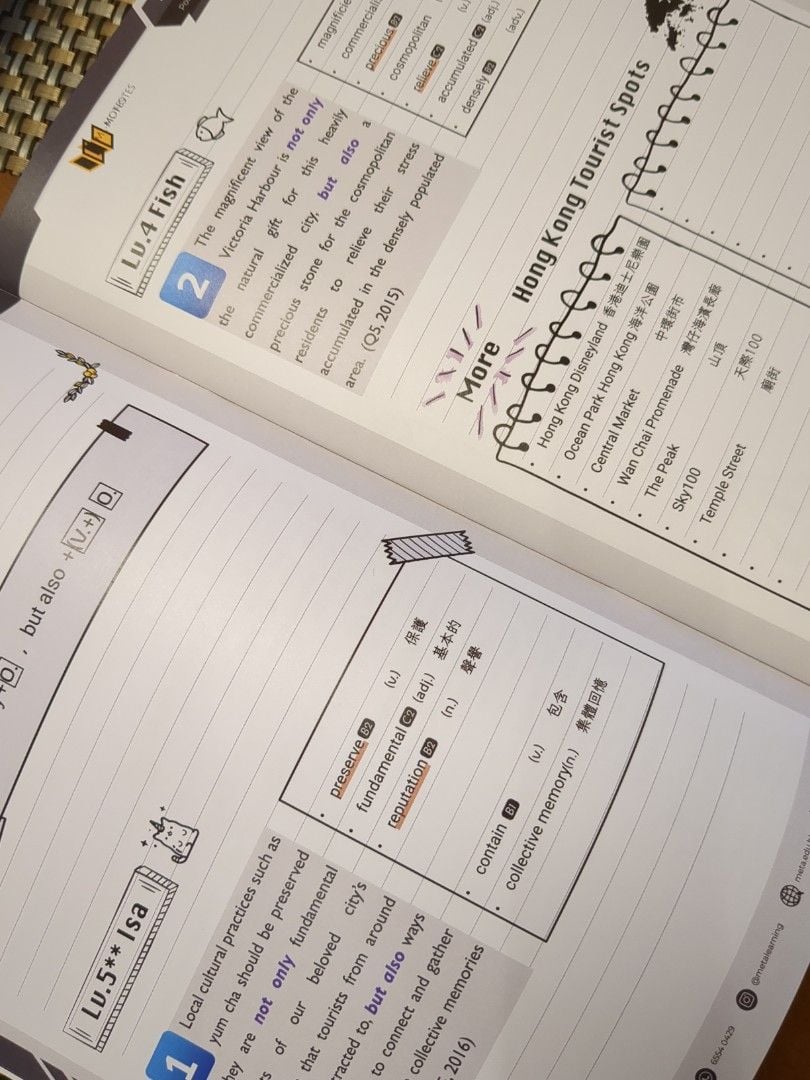 , but also + (V.+) O.
Lv.5** Isa
1
Local cultural practices such as
yum cha should be preserved
they are not only fundamental
of our beloved city's
that tourists from around
to, but also ways
to connect and gather
collective memories
2016)
preserve B2 (v.) 保護
fundamental C2 (adj.) 基本的
reputation B2 (n.) 聲譽
contain B1 (v.) 包含
collective memory(n.) 集體回憶
6554 0429
@metalearning
Lv.4 Fish
2
The magnificent view of the
Victoria Harbour is not only
the natural gift for this heavily
commercialized city, but also a
precious stone for the cosmopolitan
residents to relieve their stress
accumulated in the densely populated
area. (Q5, 2015)
precious B2
cosmopolitan
relieve C2 (v.)
accumulated C2 (adj.)
densely B2 (adv.)
More Hong Kong Tourist Spots
Hong Kong Disneyland 香港迪士尼樂園
Ocean Park Hong Kong 海洋公園
Central Market 中環街市
Wan Chai Promenade 灣仔海濱長廊
The Peak 山頂
Sky100 天際100
Temple Street 廟街